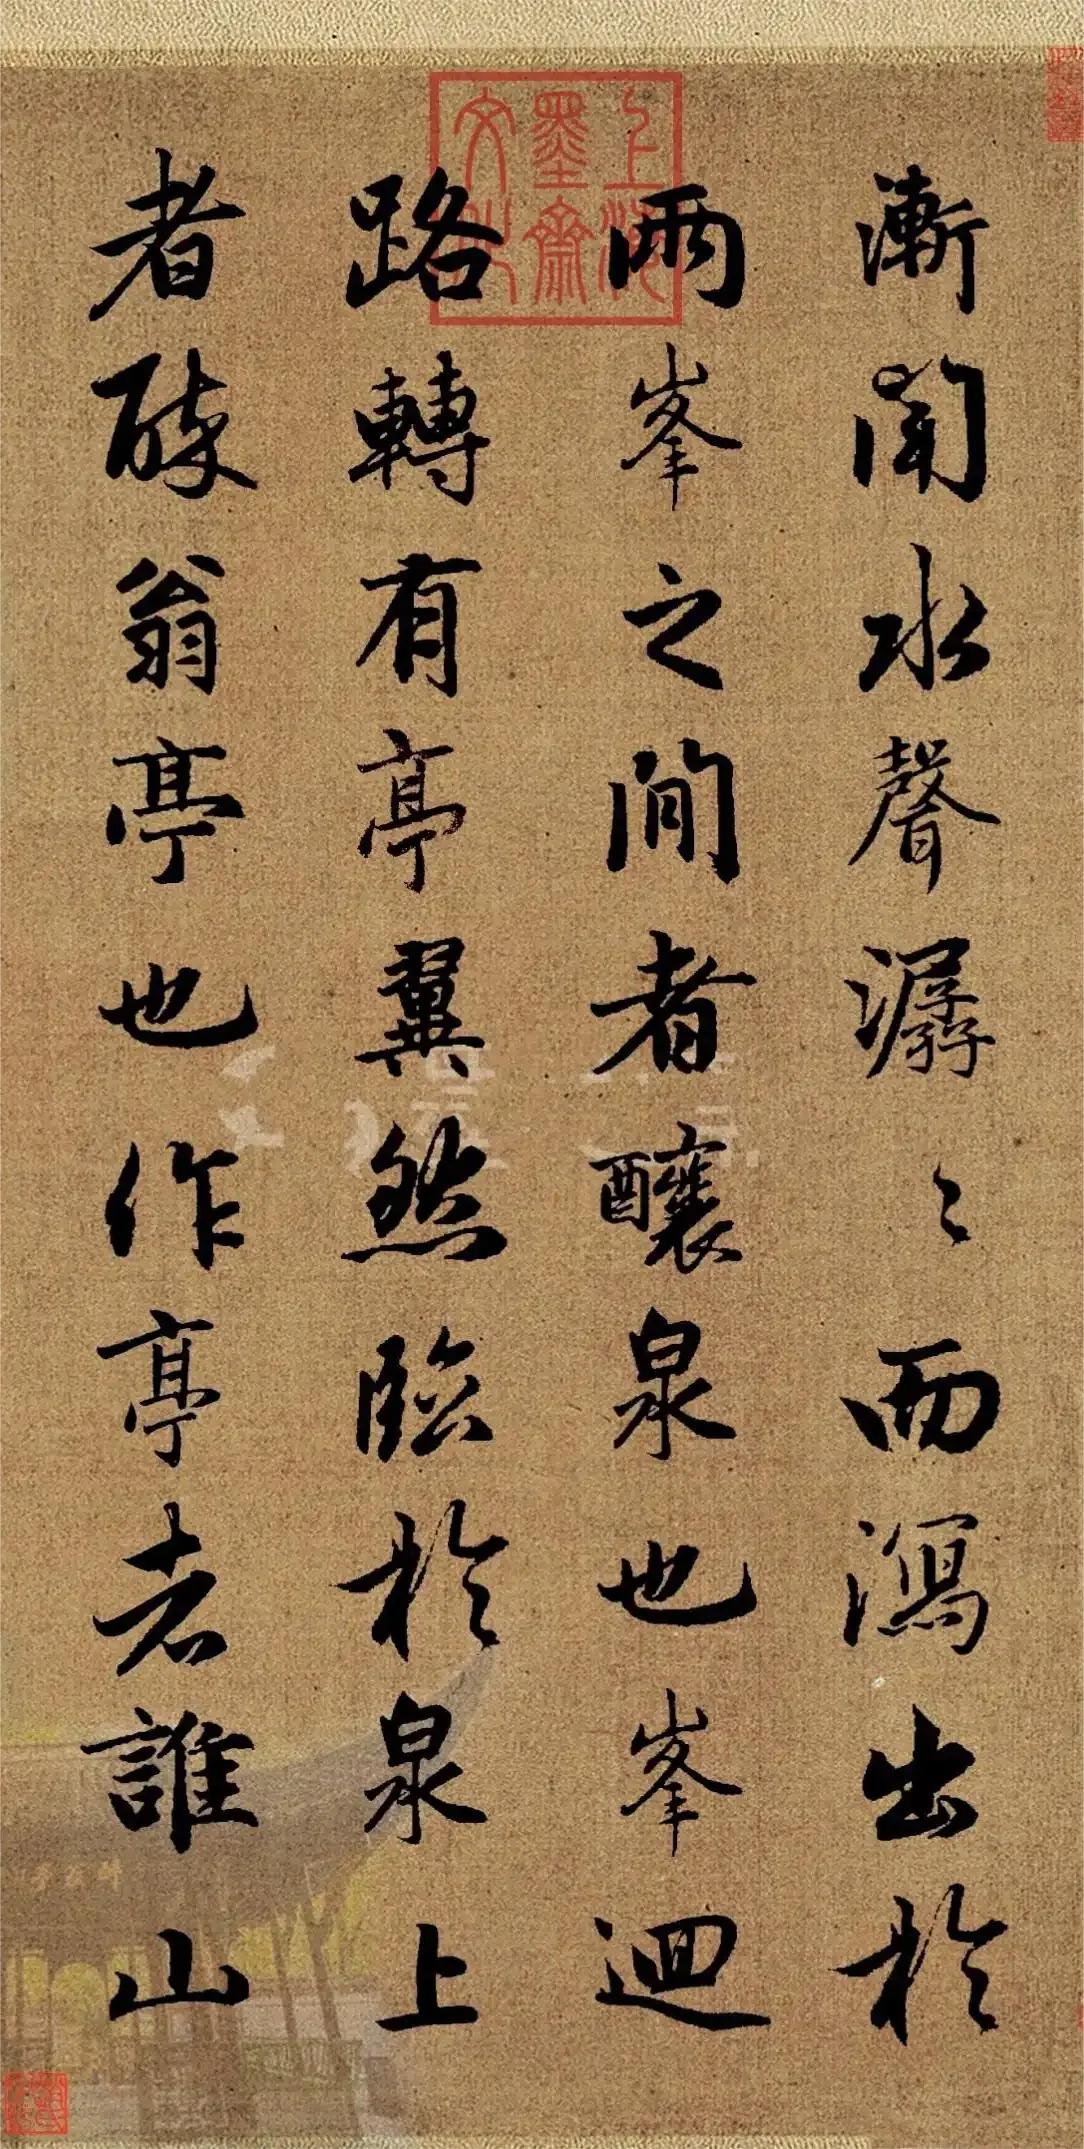 漸聞水聲潺〻而瀉出於
兩峯之間者釀泉也峯迴
路轉有亭翼然臨於泉上
者醉翁亭也作亭者誰山
上海墨齋